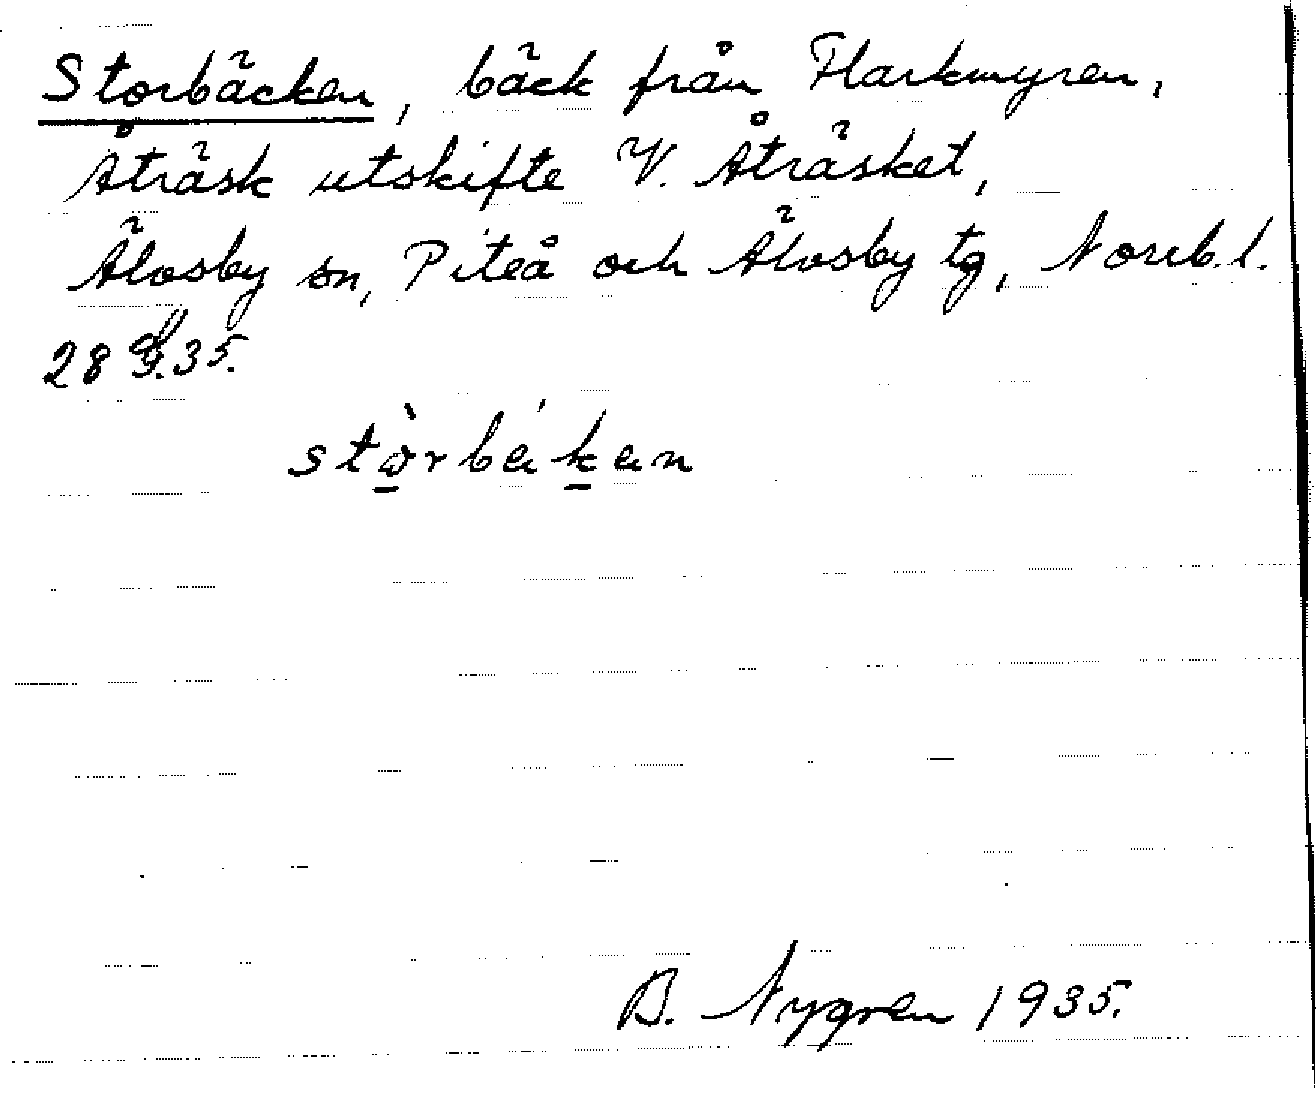 Storbäcken, bäck från Flarkmyren,
Åträsk utskifte V. Åträsket,
Älvsby sn, Piteå och Älvsby tg, Norrb. l.
28 35.
stòrbäkən
B. Nygren 1935.